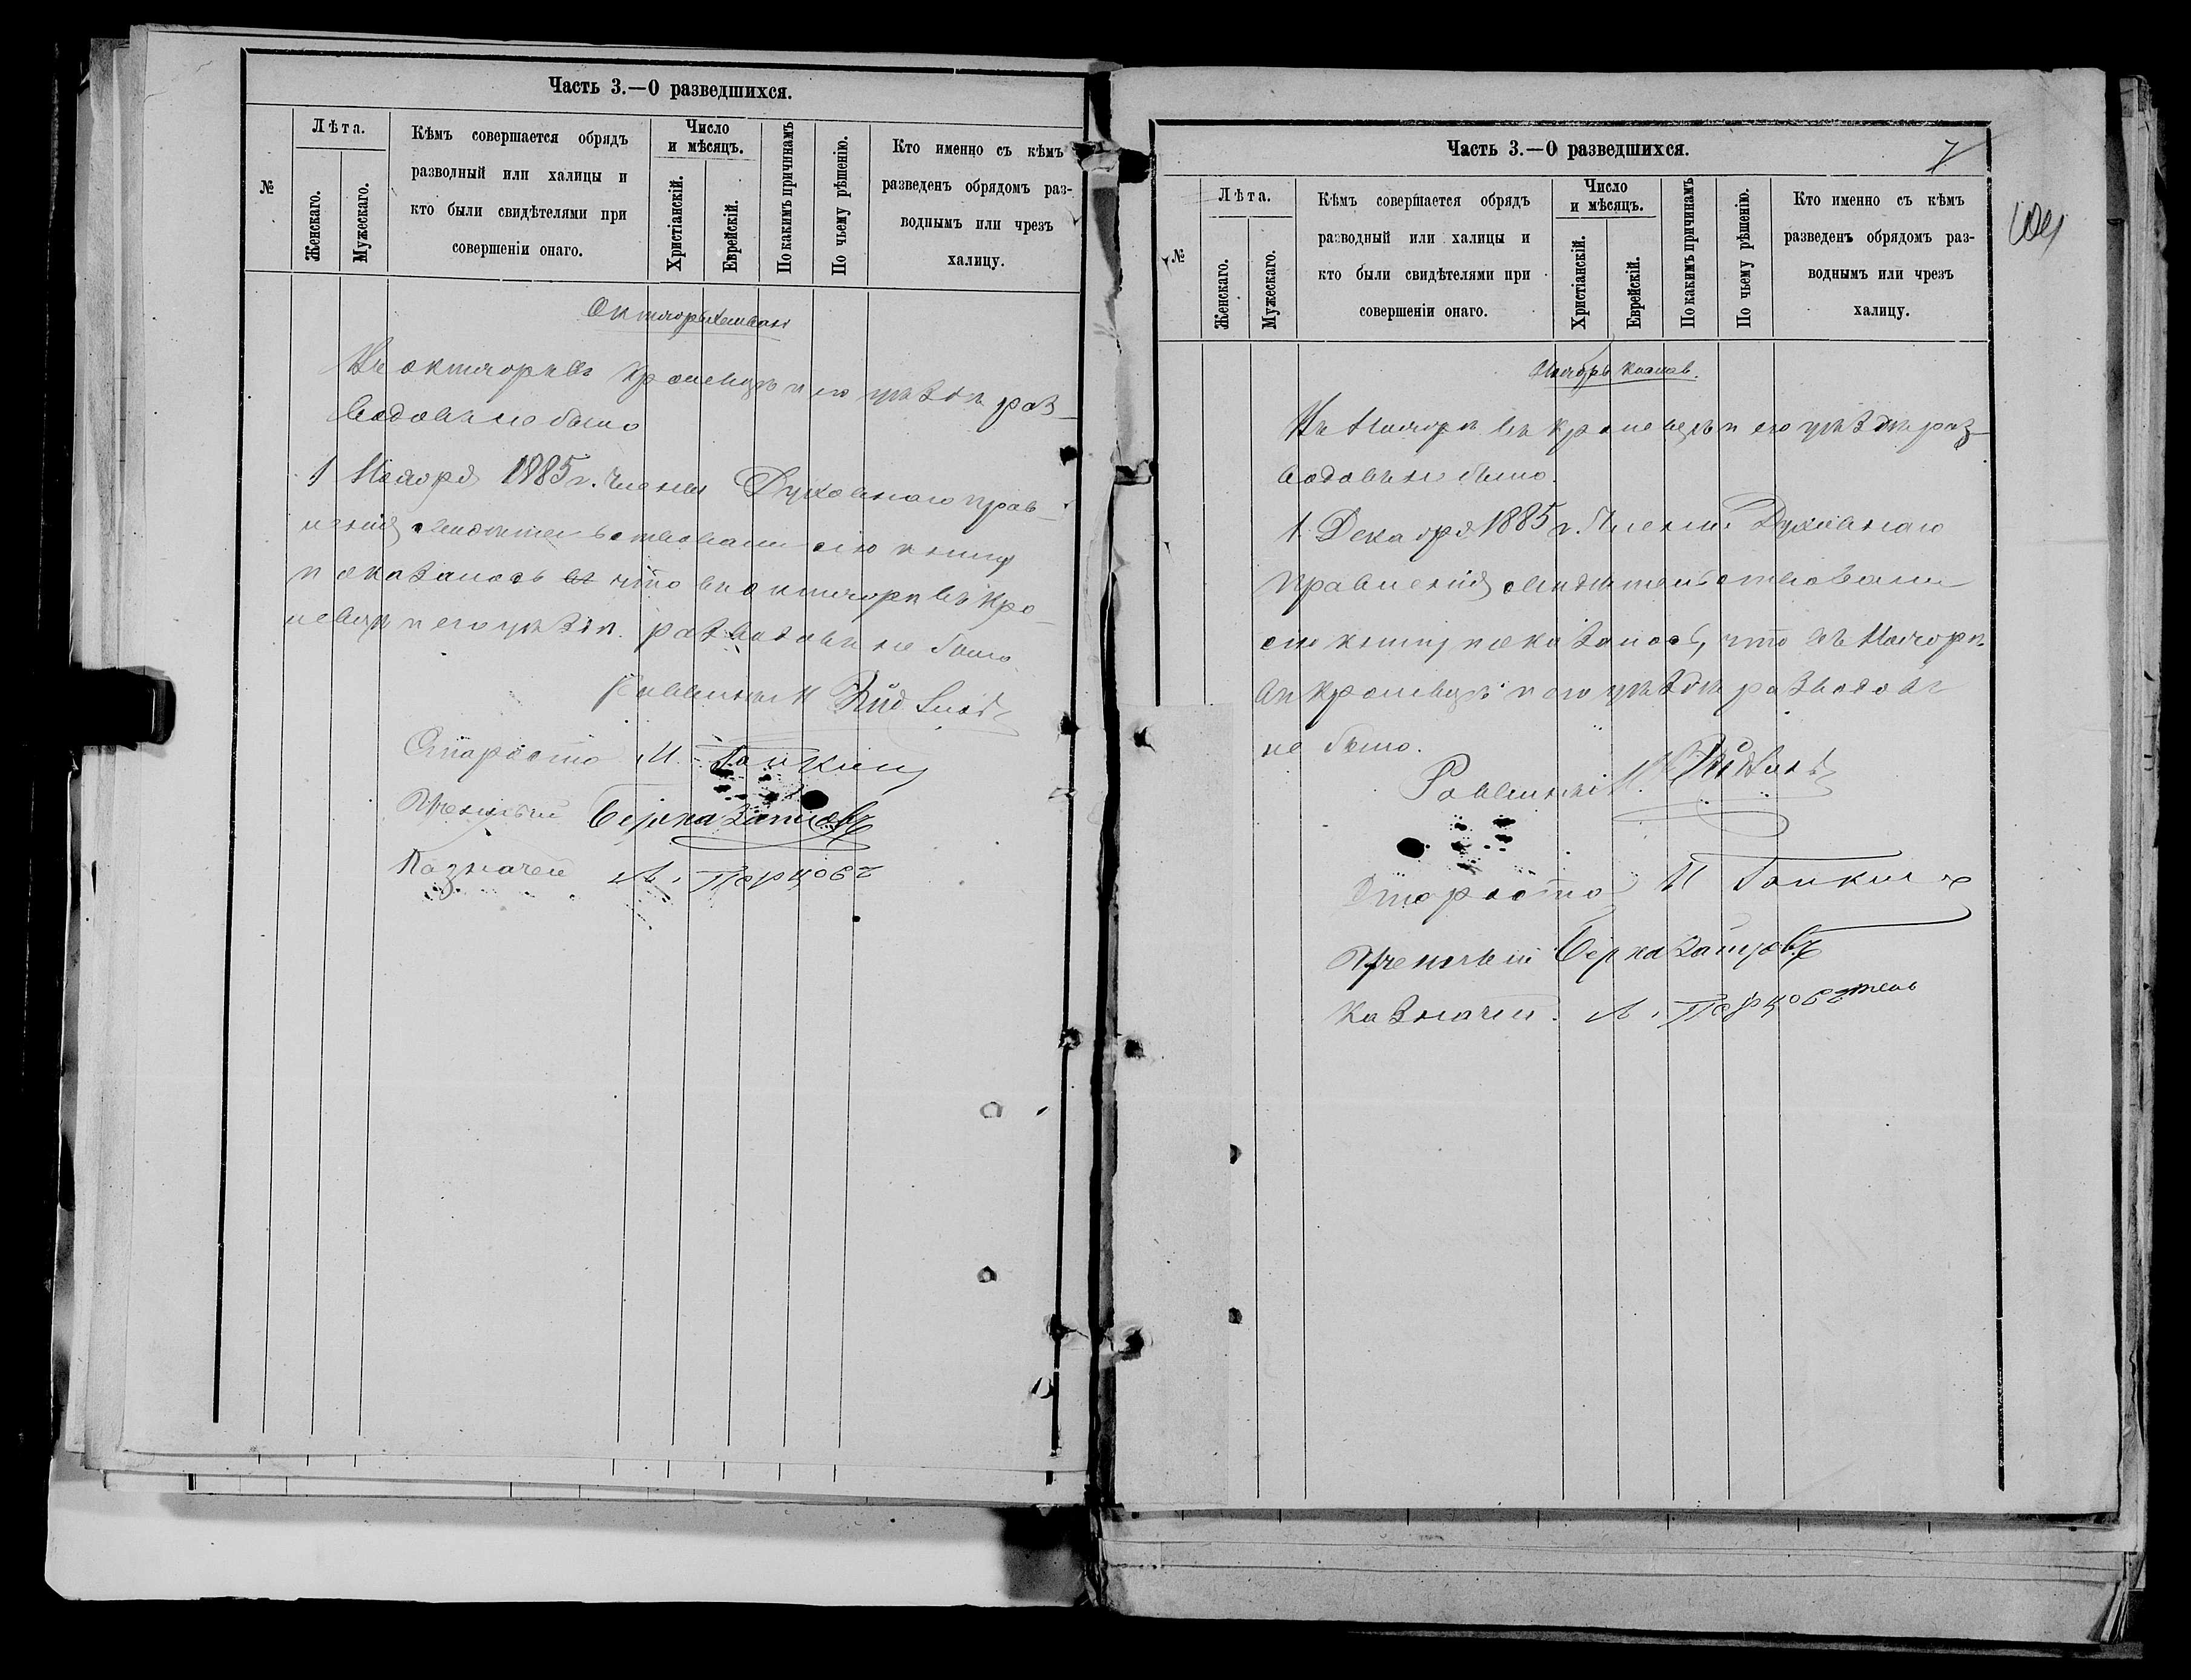 Часть 3.—О разведшихся.
№
Лѣта.
Женскаго.
Мужескаго.
Кѣмъ совершается обрядъ
разводный или халицы и
кто были свидѣтелями при
совершеніи онаго.
Число
и мѣсяцъ.
Христіанскій.
Еврейскій.
По какимъ причинамъ
По чьему рѣшенію.
Кто именно съ кѣмъ
разведенъ обрядомъ раз-
воднымъ или чрезъ
халицу.
Октябрь
Въ октябрѣ въ Кролевцѣ и его уѣздѣ раз-
водовъ не было
1 Ноября 1885 г. Члены Духовнаго прав-
ленія свидѣтельствовали сію книгу
и оказалось что въ октябрѣ въ Кро-
левцѣ и его уѣздѣ разводовъ не было
Раввинъ
Староста М.
Ученый Берка Зайцовъ
Казначей Л. Перцовъ
Часть 3.—О разведшихся.
7
№
Лѣта.
Женскаго.
Мужескаго.
Кѣмъ совершается обрядъ
разводный или халицы и
кто были свидѣтелями при
совершеніи онаго.
Число
и мѣсяцъ.
Христіанскій.
Еврейскій.
По какимъ причинамъ
По чьему рѣшенію.
Кто именно съ кѣмъ
разведенъ обрядомъ раз-
воднымъ или чрезъ
халицу.
Ноябрь
Въ Ноябрѣ въ Кролевцѣ и его уѣздѣ раз-
водовъ не было.
1 Декабря 1885 г. Члены Духовнаго
Правленія свидѣтельствовали
сію книгу и оказалось, что въ Ноябрѣ
въ Кролевцѣ и его уѣздѣ разводовъ
не было.
Раввинъ
Староста М
Ученый Берка Зайцовъ
Казначей. Л. Перцовъ